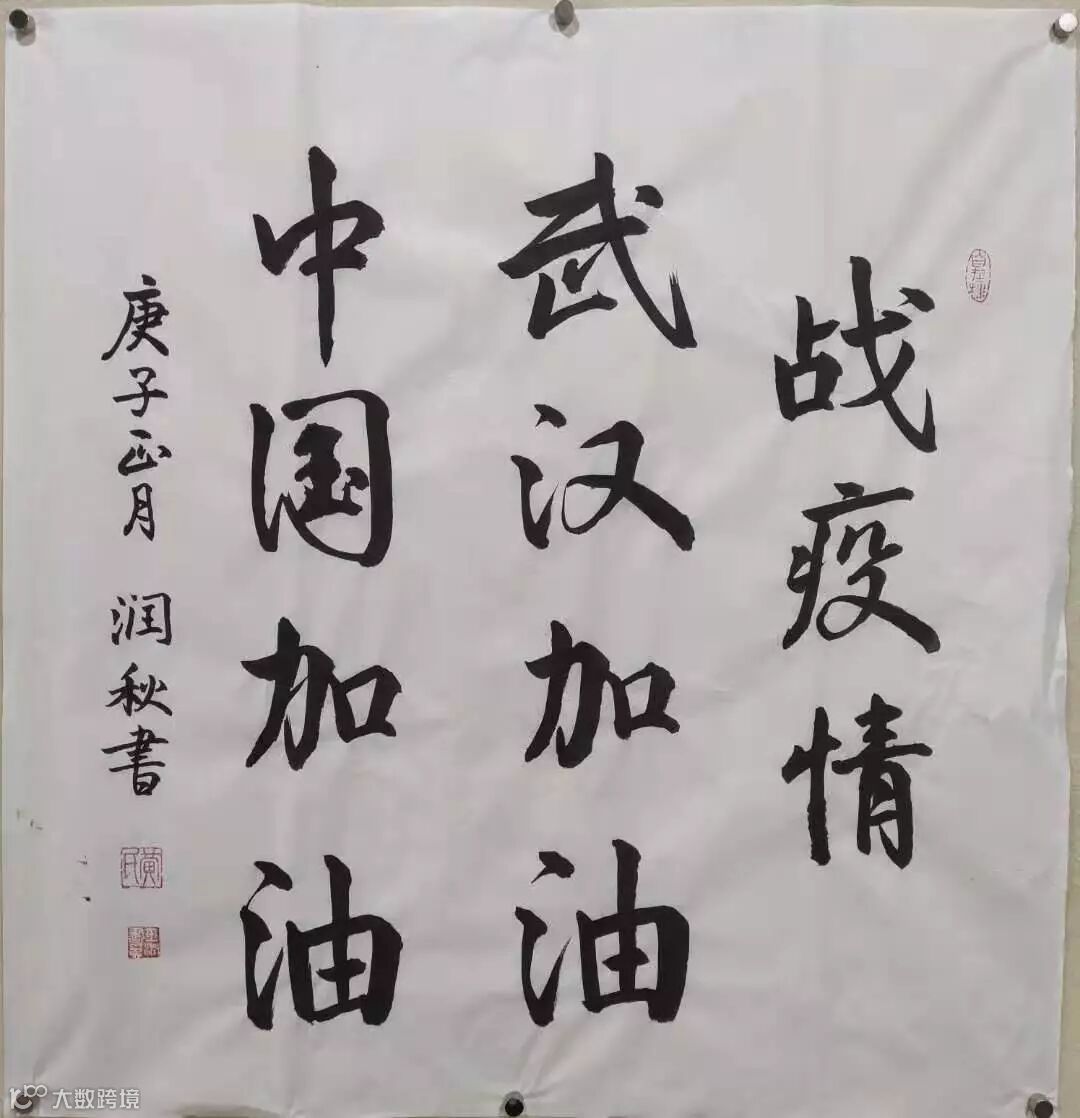 战疫情
武汉加油
中国加油
庚子正月 润秋書
黄氏
大数跨境